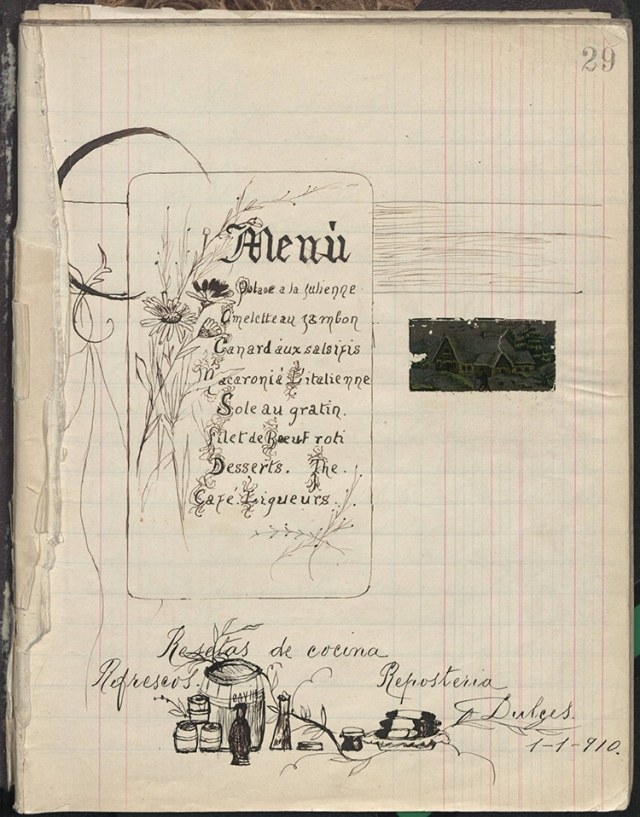 29
Menú
Potage a la Julienne
Omelette au jambon
Canard aux salsifis
Macaroni á L'italienne
Sole au gratin.
filet de Bœuf roti
Desserts. The.
Café. Liqueurs.
Resetas de cocina
Refrescos. Reposteria
y Dulces.
1-1-910.